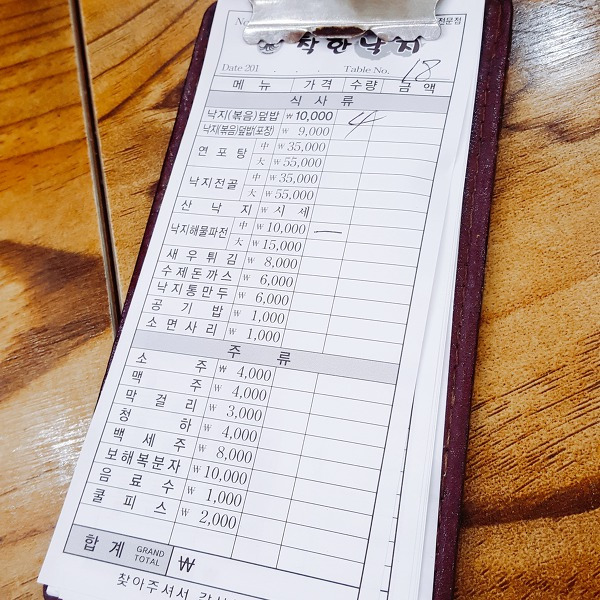 No
전문점
착한낙지
Date 201 . . . Table No. 18
메뉴 가격 수량 금액
식사류
낙지(볶음)덮밥 ₩10,000 4
낙지(볶음)덮밥(포장) ₩ 9,000
연포탕 中 ₩35,000
大 ₩55,000
낙지전골 中 ₩35,000
大 ₩55,000
산낙지 ₩ 시세
낙지해물파전 中 ₩10,000 一
大 ₩15,000
새우튀김 ₩ 8,000
수제돈까스 ₩ 6,000
낙지통만두 ₩ 6,000
공기밥 ₩ 1,000
소면사리 ₩ 1,000
주류
소주 ₩ 4,000
맥주 ₩ 4,000
막걸리 ₩ 3,000
청하 ₩ 4,000
백세주 ₩ 8,000
보해복분자 ₩10,000
음료수 ₩ 1,000
쿨피스 ₩ 2,000
합계 GRAND TOTAL ₩
찾아주셔서